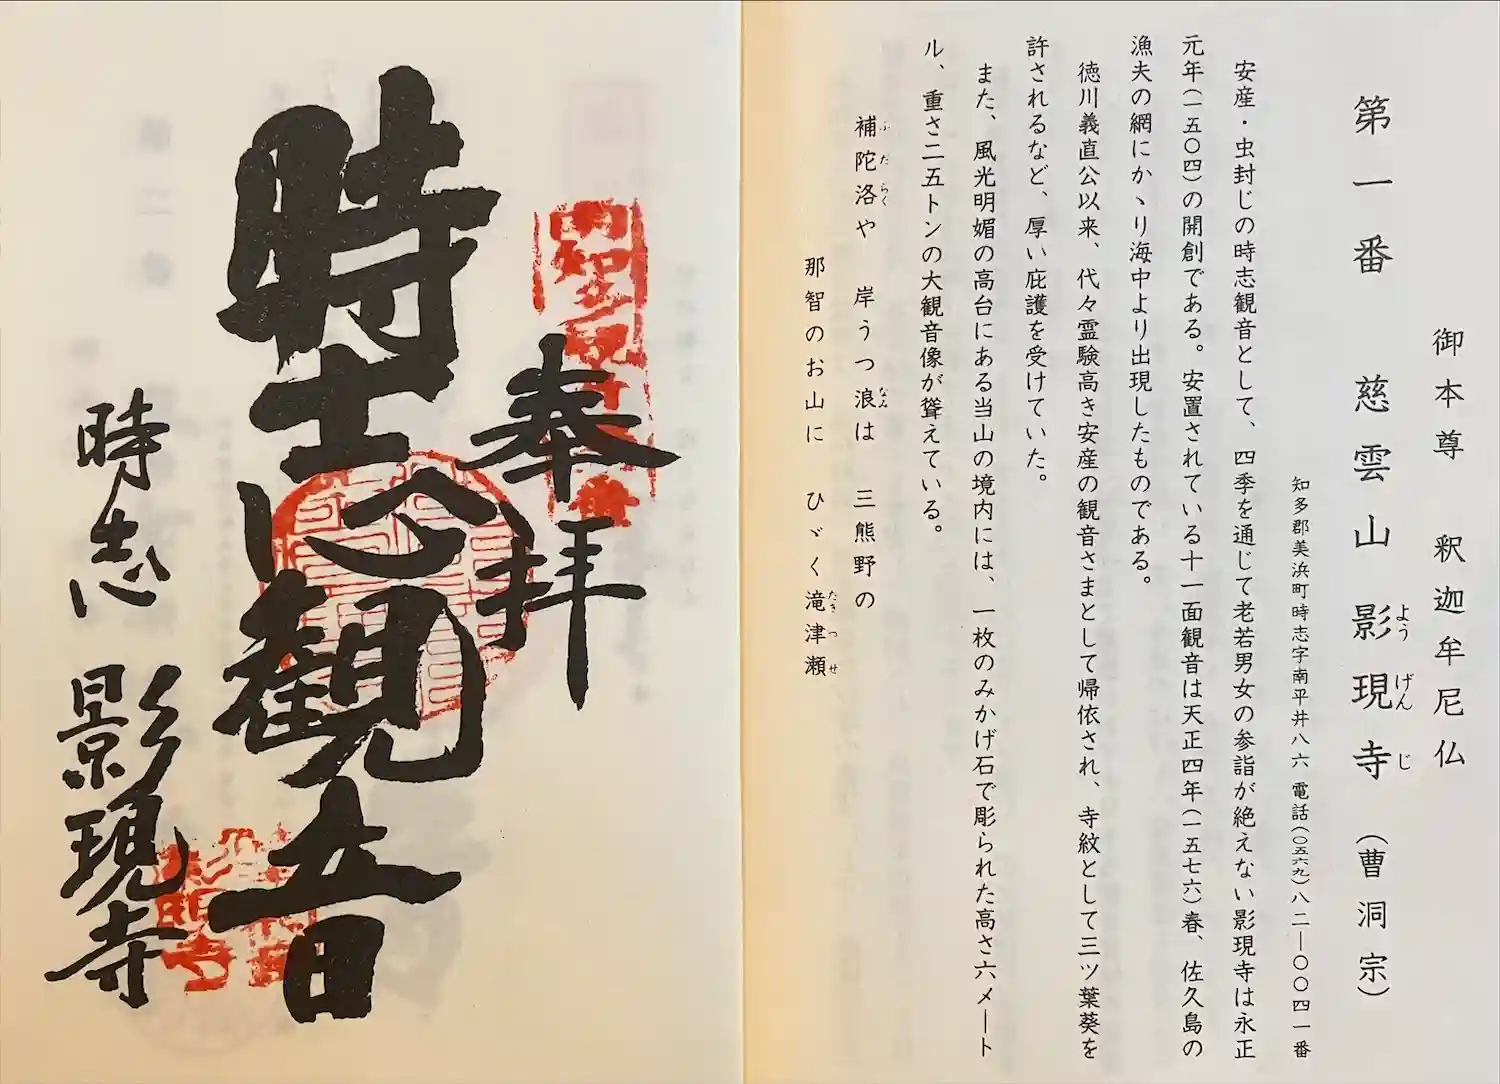 御本尊 釈迦牟尼仏
第一番 慈雲山 影現寺 (曹洞宗)
よう げん じ
知多郡美浜町時志字南平井八六 電話(〇五六九)八二―〇〇四一番
安産・虫封じの時志観音として、四季を通じて老若男女の参詣が絶えない影現寺は永正
元年(一五〇四)の開創である。安置されている十一面観音は天正四年(一五七六)春、佐久島の
漁夫の網にかゝり海中より出現したものである。
徳川義直公以来、代々霊験高き安産の観音さまとして帰依され、寺紋として三ツ葉葵を
許されるなど、厚い庇護を受けていた。
また、風光明媚の高台にある当山の境内には、一枚のみかげ石で彫られた高さ六メート
ル、重さ二五トンの大観音像が聳えている。
補陀洛や 岸うつ浪は 三熊野の
ふ だ らく なみ
那智のお山に ひゞく滝津瀬
たき つ せ
奉拝
時志観音
時志 影現寺